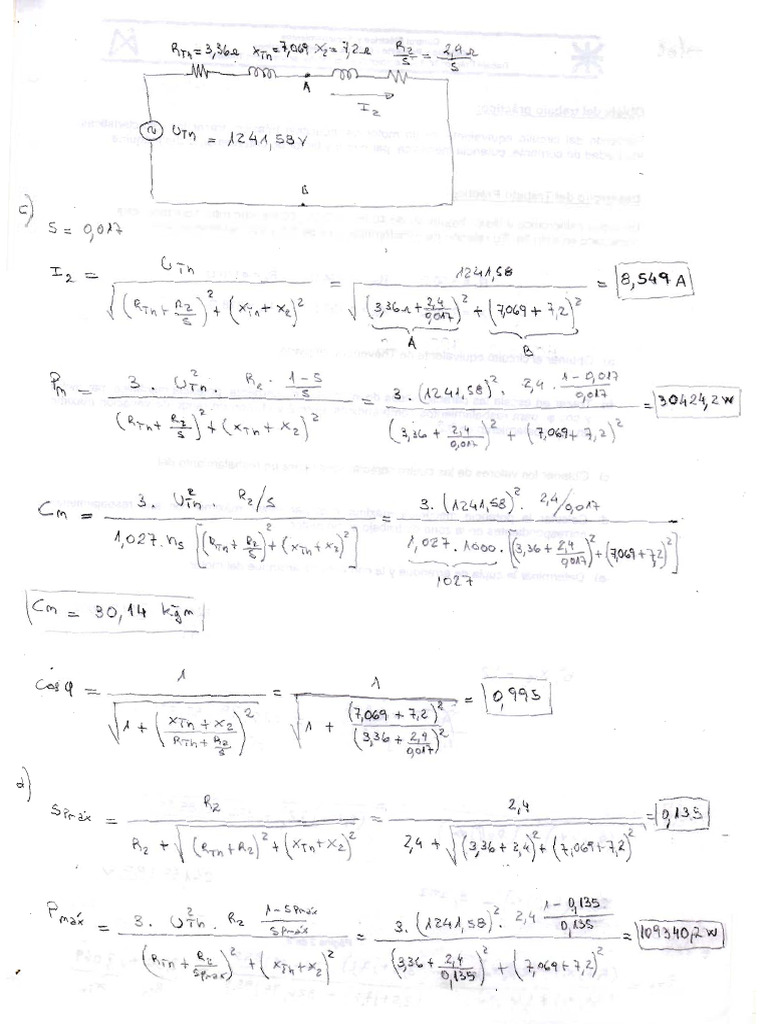 R_Th = 3,36Ω X_Th = 7,069 X_2 = 7,2Ω R_2/S = 2,4Ω/S
A
I_2
U_Th = 1241,58V
B
c)
S = 0,017
I_2 = U_Th / √((R_Th + R_2/S)² + (X_Th + X_2)²) = 1241,58 / √((3,36Ω + 2,4/0,017)² + (7,069 + 7,2)²) = 8,549 A
A B
P_m = 3 . U_Th² . R_2 . (1-S)/S / ((R_Th + R_2/S)² + (X_Th + X_2)²) = 3 . (1241,58)² . 2,4 . (1-0,017)/0,017 / ((3,36 + 2,4/0,017)² + (7,069 + 7,2)²) = 30424,2 W
C_m = 3 . U_Th² . R_2/S / (1,027 . n_s [(R_Th + R_2/S)² + (X_Th + X_2)²]) = 3 . (1241,58)² . 2,4/0,017 / (1,027 . 1000 . [(3,36 + 2,4/0,017)² + (7,069 + 7,2)²])
1027
C_m = 30,14 kgm
Cos φ = 1 / √(1 + ((X_Th + X_2)/(R_Th + R_2/S))²) = 1 / √(1 + (7,069 + 7,2)²/(3,36 + 2,4/0,017)²) = 0,995
d)
S_Pmáx = R_2 / (R_2 + √((R_Th + R_2)² + (X_Th + X_2)²)) = 2,4 / (2,4 + √((3,36 + 2,4)² + (7,069 + 7,2)²)) = 0,135
P_máx = 3 . U_Th² . R_2 (1-S_Pmáx)/S_Pmáx / ((R_Th + R_2/S_Pmáx)² + (X_Th + X_2)²) = 3 . (1241,58)² . 2,4 (1-0,135)/0,135 / ((3,36 + 2,4/0,135)² + (7,069 + 7,2)²) = 109340,2 W